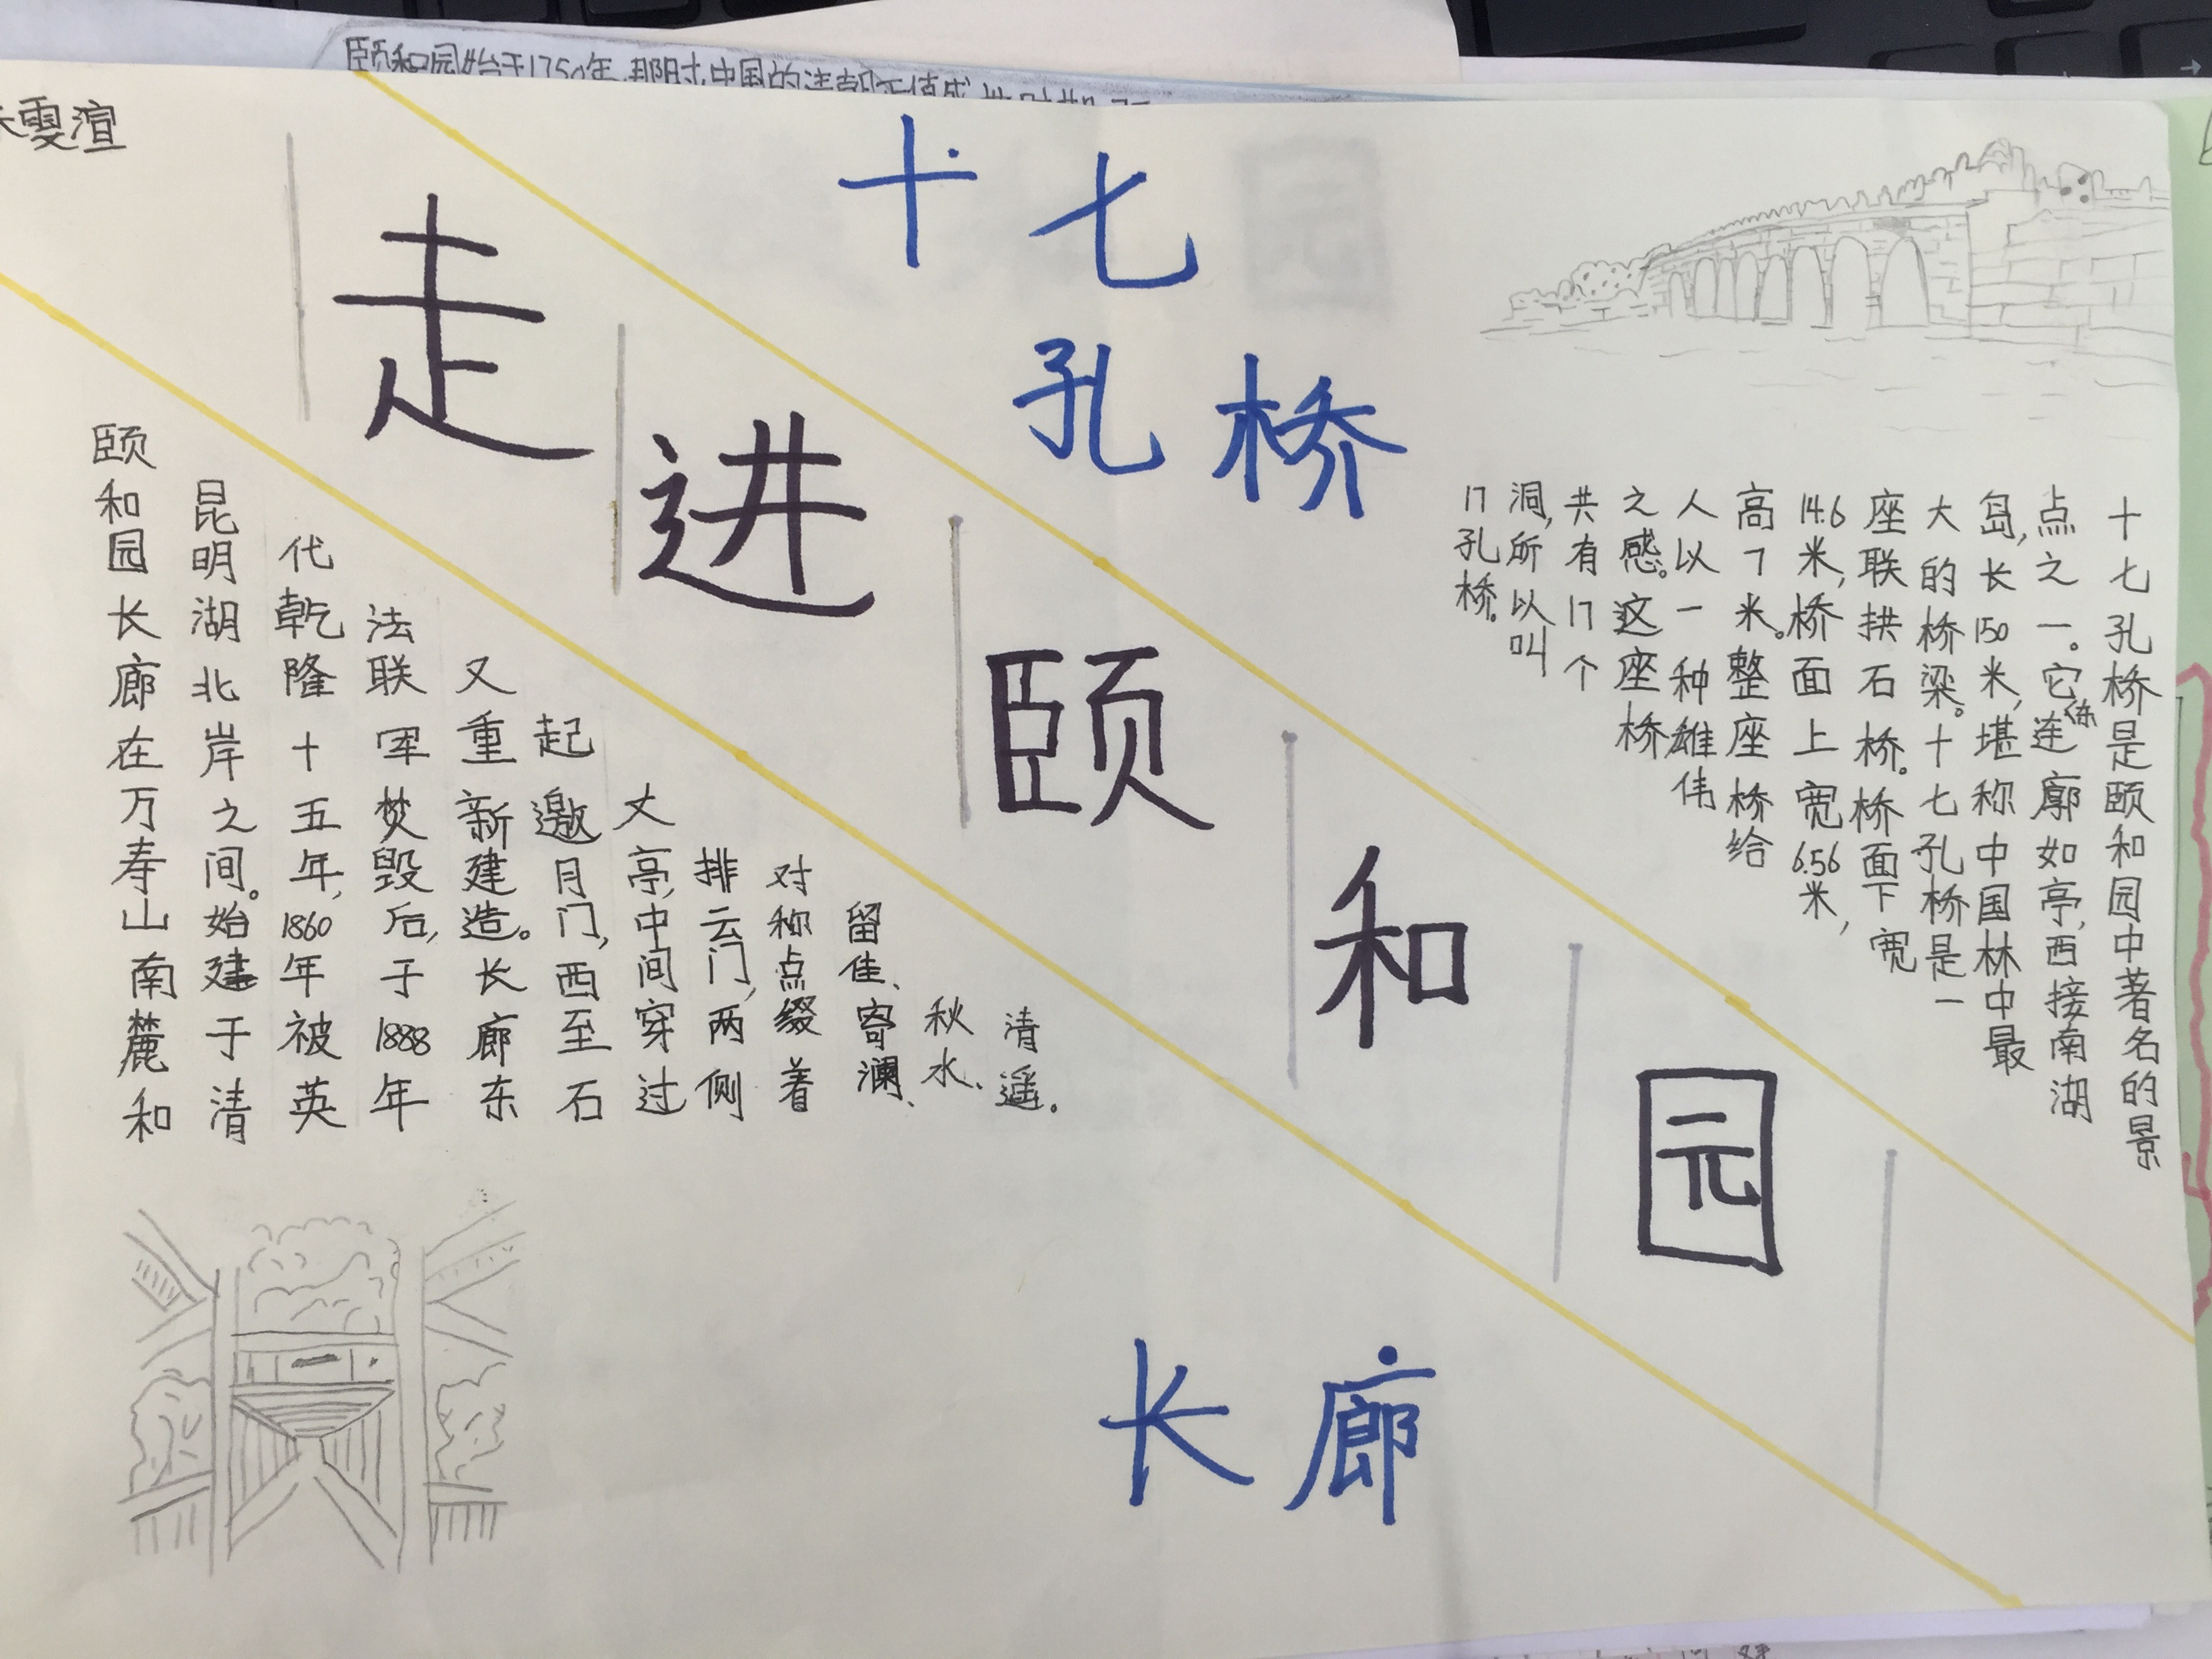 颐和园始于1750年,那时中国的清朝正值
雯渲
走进颐和园
十七
孔桥
十七孔桥是颐和园中著名的景
点之一。它东连廓如亭,西接南湖
岛,长150米,堪称中国林中最
大的桥梁。十七孔桥是一
座联拱石桥。桥面下宽
14.6米,桥面上宽6.56米,
高7米。整座桥给
人以一种雄伟
之感。这座桥
共有17个
洞,所以叫
17孔桥。
颐和园长廊在万寿山南麓和
昆明湖北岸之间。始建于清
代乾隆十五年,1860年被英
法联军焚毁后,于1888年
又重新建造。长廊东
起邀月门,西至石
丈亭,中间穿过
排云门,两侧
对称点缀着
留佳、寄澜、
秋水、
清遥。
长廊